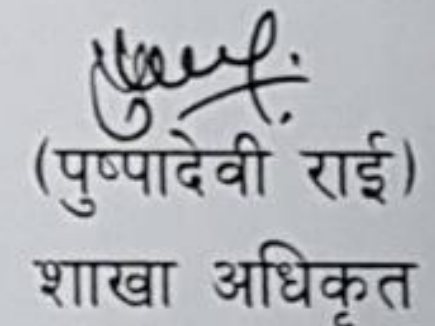 (पुष्पादेवी राई)
शाखा अधिकृत